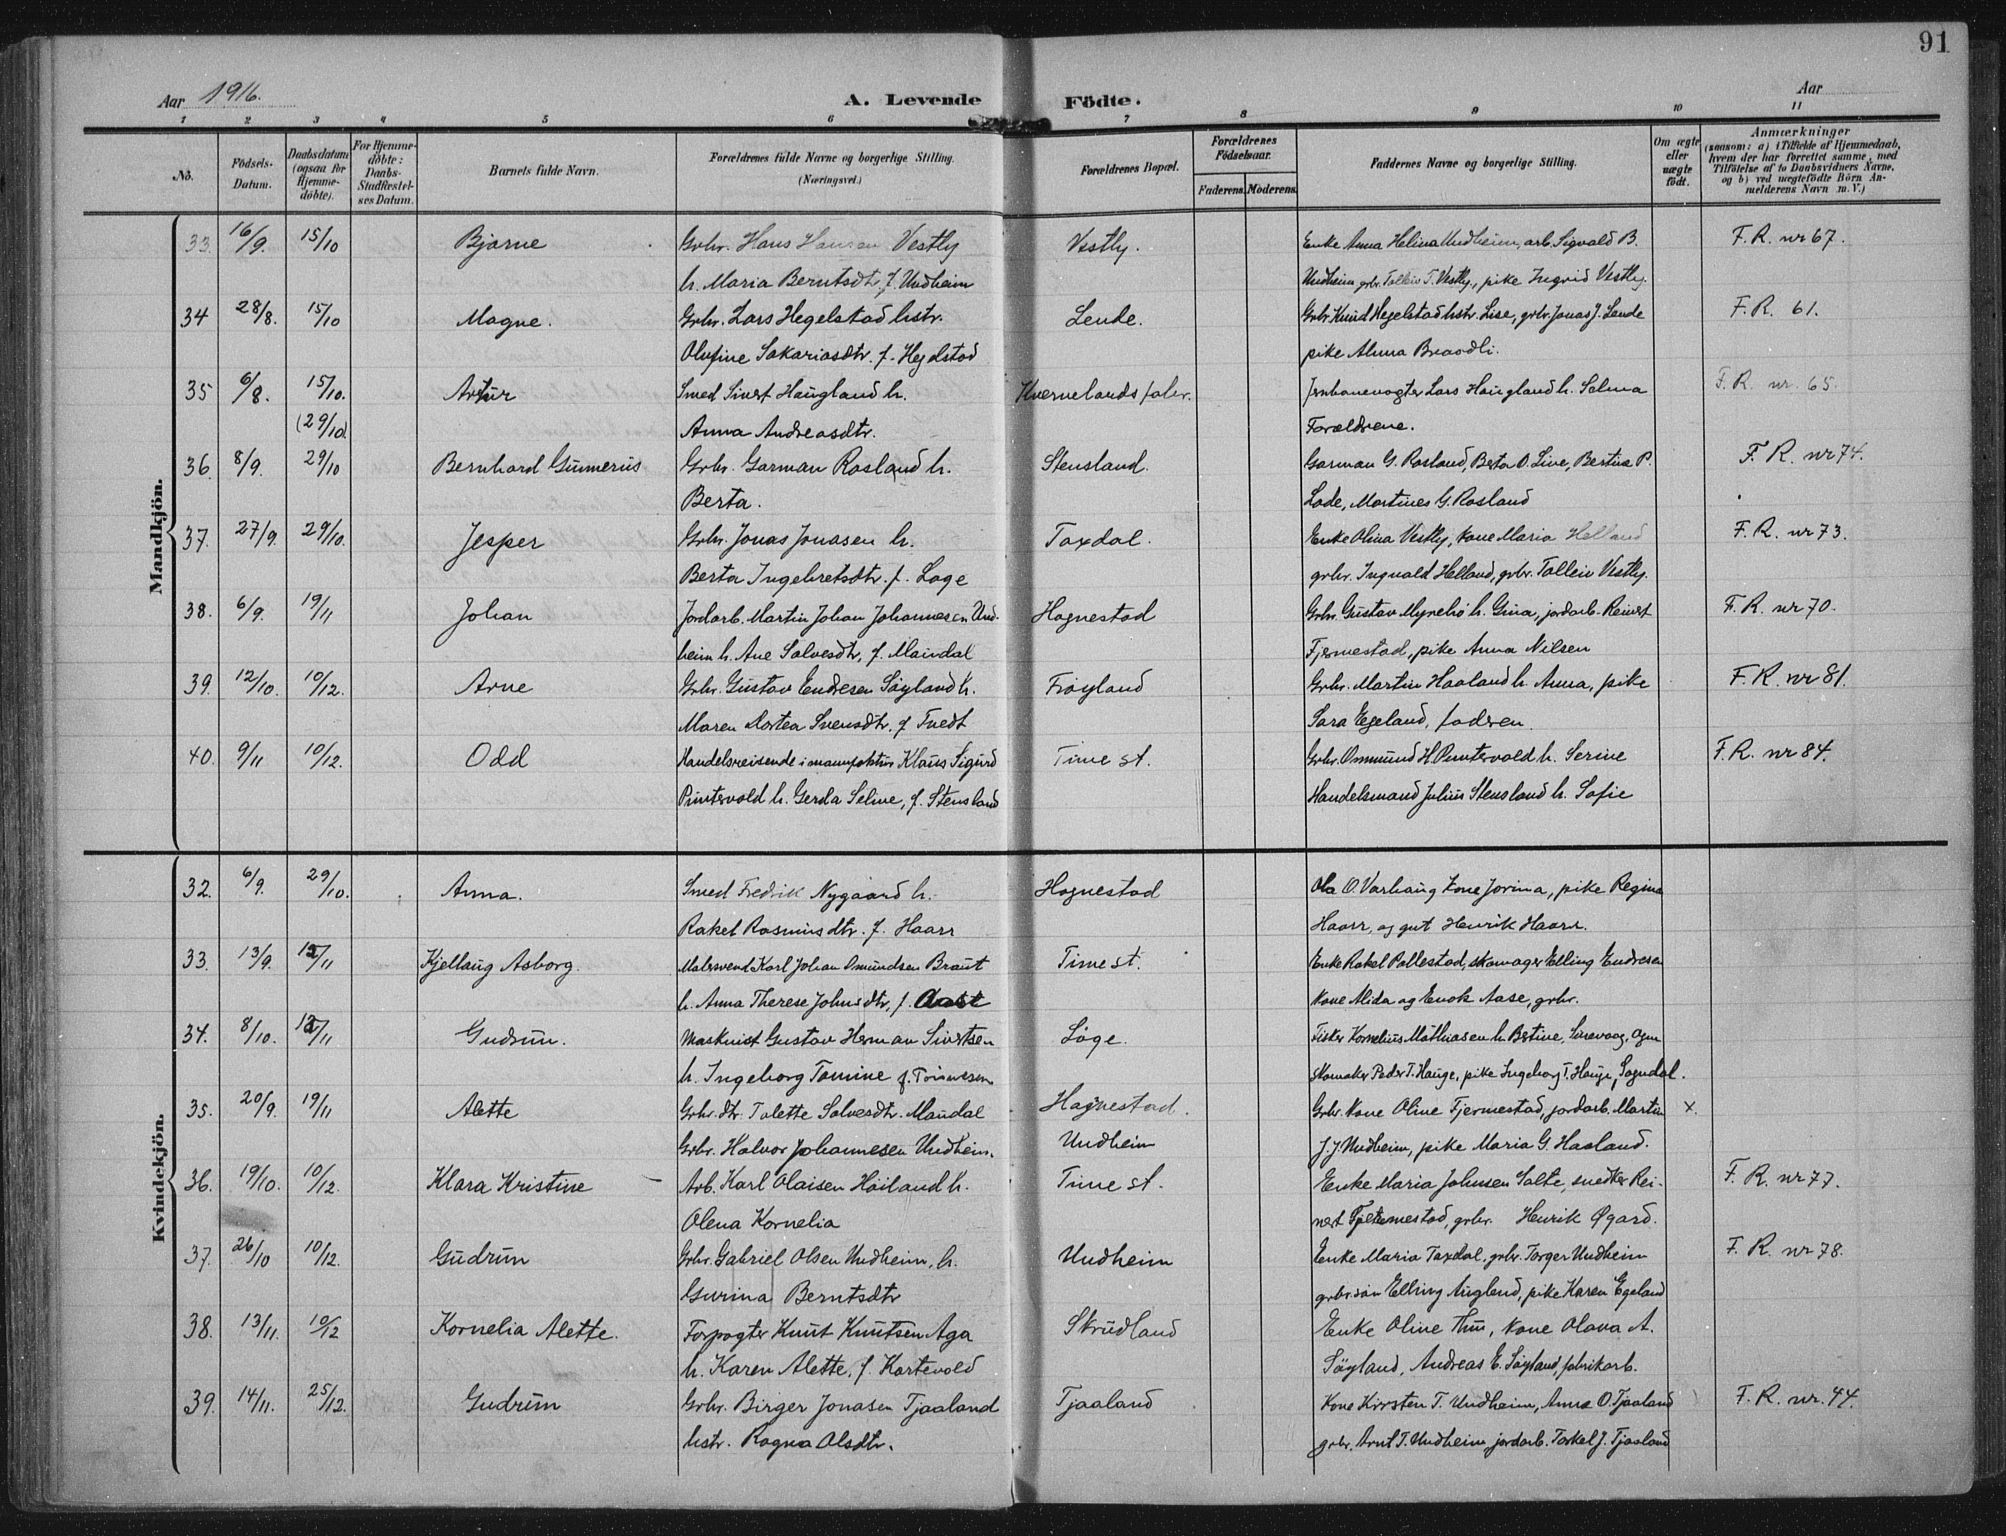 91
Aar 1916. A. Levende Födte. Aar
1 2 3 4 5 6 7 8 9 10 11
No. Födsels-Datum. Daabsdatum (ogsaa for Hjemmedöbte). For Hjemmedöbte: Daabs-Stadfestelses Datum. Barnets fulde Navn. Forældrenes fulde Navne og borgerlige Stilling. (Næringsvei.) Forældrenes Bopæl. Forældrenes Födselsaar. Faderens. Moderens. Faddernes Navne og borgerlige Stilling. Om ægte eller uægte födt. Anmærkninger (saasom: a) i Tilfælde af Hjemmedaab, hvem der har forrettet samme, med Tilföielse af to Daabsvidners Navne, og b) ved uægtefödte Börn Anmelderens Navn m. V.)
Mandkjön.
33. 16/9. 15/10 Bjarne Grbr. Hans Hansen Vestly Vestly. Enke Anna Helina Undheim, arb. Sigvald B. F.R. nr 67.
h. Maria Berntsdtr. f. Undheim Undheim grbr. Tolleiv T. Vestly, pike Ingrid Vestly.
34 28/8. 15/10 Magne. Grbr. Lars Hegelstad hstr. Lende. Grbr. Knud Hegelstad hstr. Lise, grbr. Jonas J. Lende F.R. 61.
Olufine Sakariasdtr. f. Hegelstad pike Alma Braadli.
35 6/8. 15/10. Artur Smed Sivert Haugland h. Kvernelands fabr. Jernbanevogter Lars Haugland h. Selma F.R. nr. 65.
(29/10) Anna Andreasdtr. Forældrene.
36. 8/9. 29/10 Bernhard Gunnerius Grbr. Garman Rosland h. Stensland. Garman G. Rosland, Berta O. Line, Bertine P. F.R. nr 74.
Berta. Lode, Martines G. Rosland
37. 27/9. 29/10. Jesper Grbr. Jonas Jonasen h. Taxdal. Enke Olina Vestly, kone Maria Helland F.R. nr 73.
Berta Ingebretsdtr. f. Lage grbr. Ingvald Helland, grbr. Tolleiv Vestly.
38. 6/9. 19/11 Johan Jordarb. Martin Johan Johannesen Und- Hognestad Grbr. Gustav Myrebø h. Gina, jordarb. Reinert F.R. nr 70.
heim h. Ane Salvesdtr, f. Maudal Fjermestad, pike Anna Nilsen
39. 12/10. 10/12. Arne Grbr. Gustav Endresen Søyland h. Frøyland Grbr. Martin Haaland h. Anna, pike F.R. nr 81.
Maren Dortea Svensdtr. f Tvedt Sara Egeland, faderen
40. 9/11 10/12. Odd Handelsreisende i manufaktur Klaus Sigurd Time st. Grbr. Osmund H. Puntervold h. Serine F.R. nr 84.
Puntervold h. Gerda Seline, f. Stensland Handelsmand Julius Stensland h. Sofie
Kvindekjön.
32. 6/9. 29/10. Anna. Smed Fredrik Nygaard h. Hognestad Ola O. Varhaug kone Jorina, pike Regina
Rakel Rasmusdtr. f. Haarr Haarr, og gut Henrik Haarr.
33. 13/9. 12/11 Kjellaug Asborg. Malersvend Karl Johan Osmundsen Braut Time st. Enke Rakel Pollestad, skomager Elling Endresen
h. Anna Therese Johnsdtr, f. Aase kone Alida og Enok Aase, grbr.
34. 8/10. 12/11 Gudrun. Maskinist Gustav Herman Sivertsen Løge. Fisker Kornelius Mathiasen h Bertine, Sirevaag, Ogn
h. Ingeborg Tomine f. Tønnesen skomaker Peder T. Hauge, pike Ingeborg T. Hauge, Sogndal.
35. 20/9. 19/11 Alette Grbr. dtr. Talette Salvesdtr. Maudal Hognestad. Grbr. kone Oline Fjermestad, jordarb. Martin x.
Grbr. Halvor Johannesen Undheim. Undheim J. J. Undheim, pike Maria G. Haaland.
36. 19/10. 10/12. Klara Kristine Arb. Karl Olaisen Høiland h. Time st. Enke Maria Johnsen Salte, snedker Rei- F.R. nr 77.
Olena Kornelia nert Fjermestad, grbr. Henrik Øgard.
37. 26/10 10/12. Gudrun Grbr. Gabriel Olsen Undheim, h. Undheim Enke Maria Taxdal, grbr. Torger Undheim F.R. nr 78.
Gurina Berntsdtr grbr. søn Elling Augland, pike Karen Egeland
38. 13/11. 10/12 Kornelia Alette. Forpagter Knut Knutsen Aga Skrudland Enke Oline Thu, kone Olava A.
h. Karen Alette, f Kartevold Søyland, Andreas E. Søyland, fabrikarb.
39. 14/11. 25/12. Gudrun Grbr. Birger Jonasen Tjaaland Tjaaland Kone Kirsten T. Undheim, Anna O. Tjaaland F.R. nr. 44.
hstr. Ragna Olsdtr. grbr. Arnt T. Undheim jordarb. Torkel J. Tjaaland